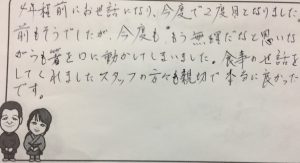 4年程前にお世話になり、今度で2度目となりました
前もそうでしたが、今度も、もう無理だなと思いな
がらも箸を口に動かしてしまいました。食事の世話を
してくれましたスタッフの方々も親切で本当に良かった
です。